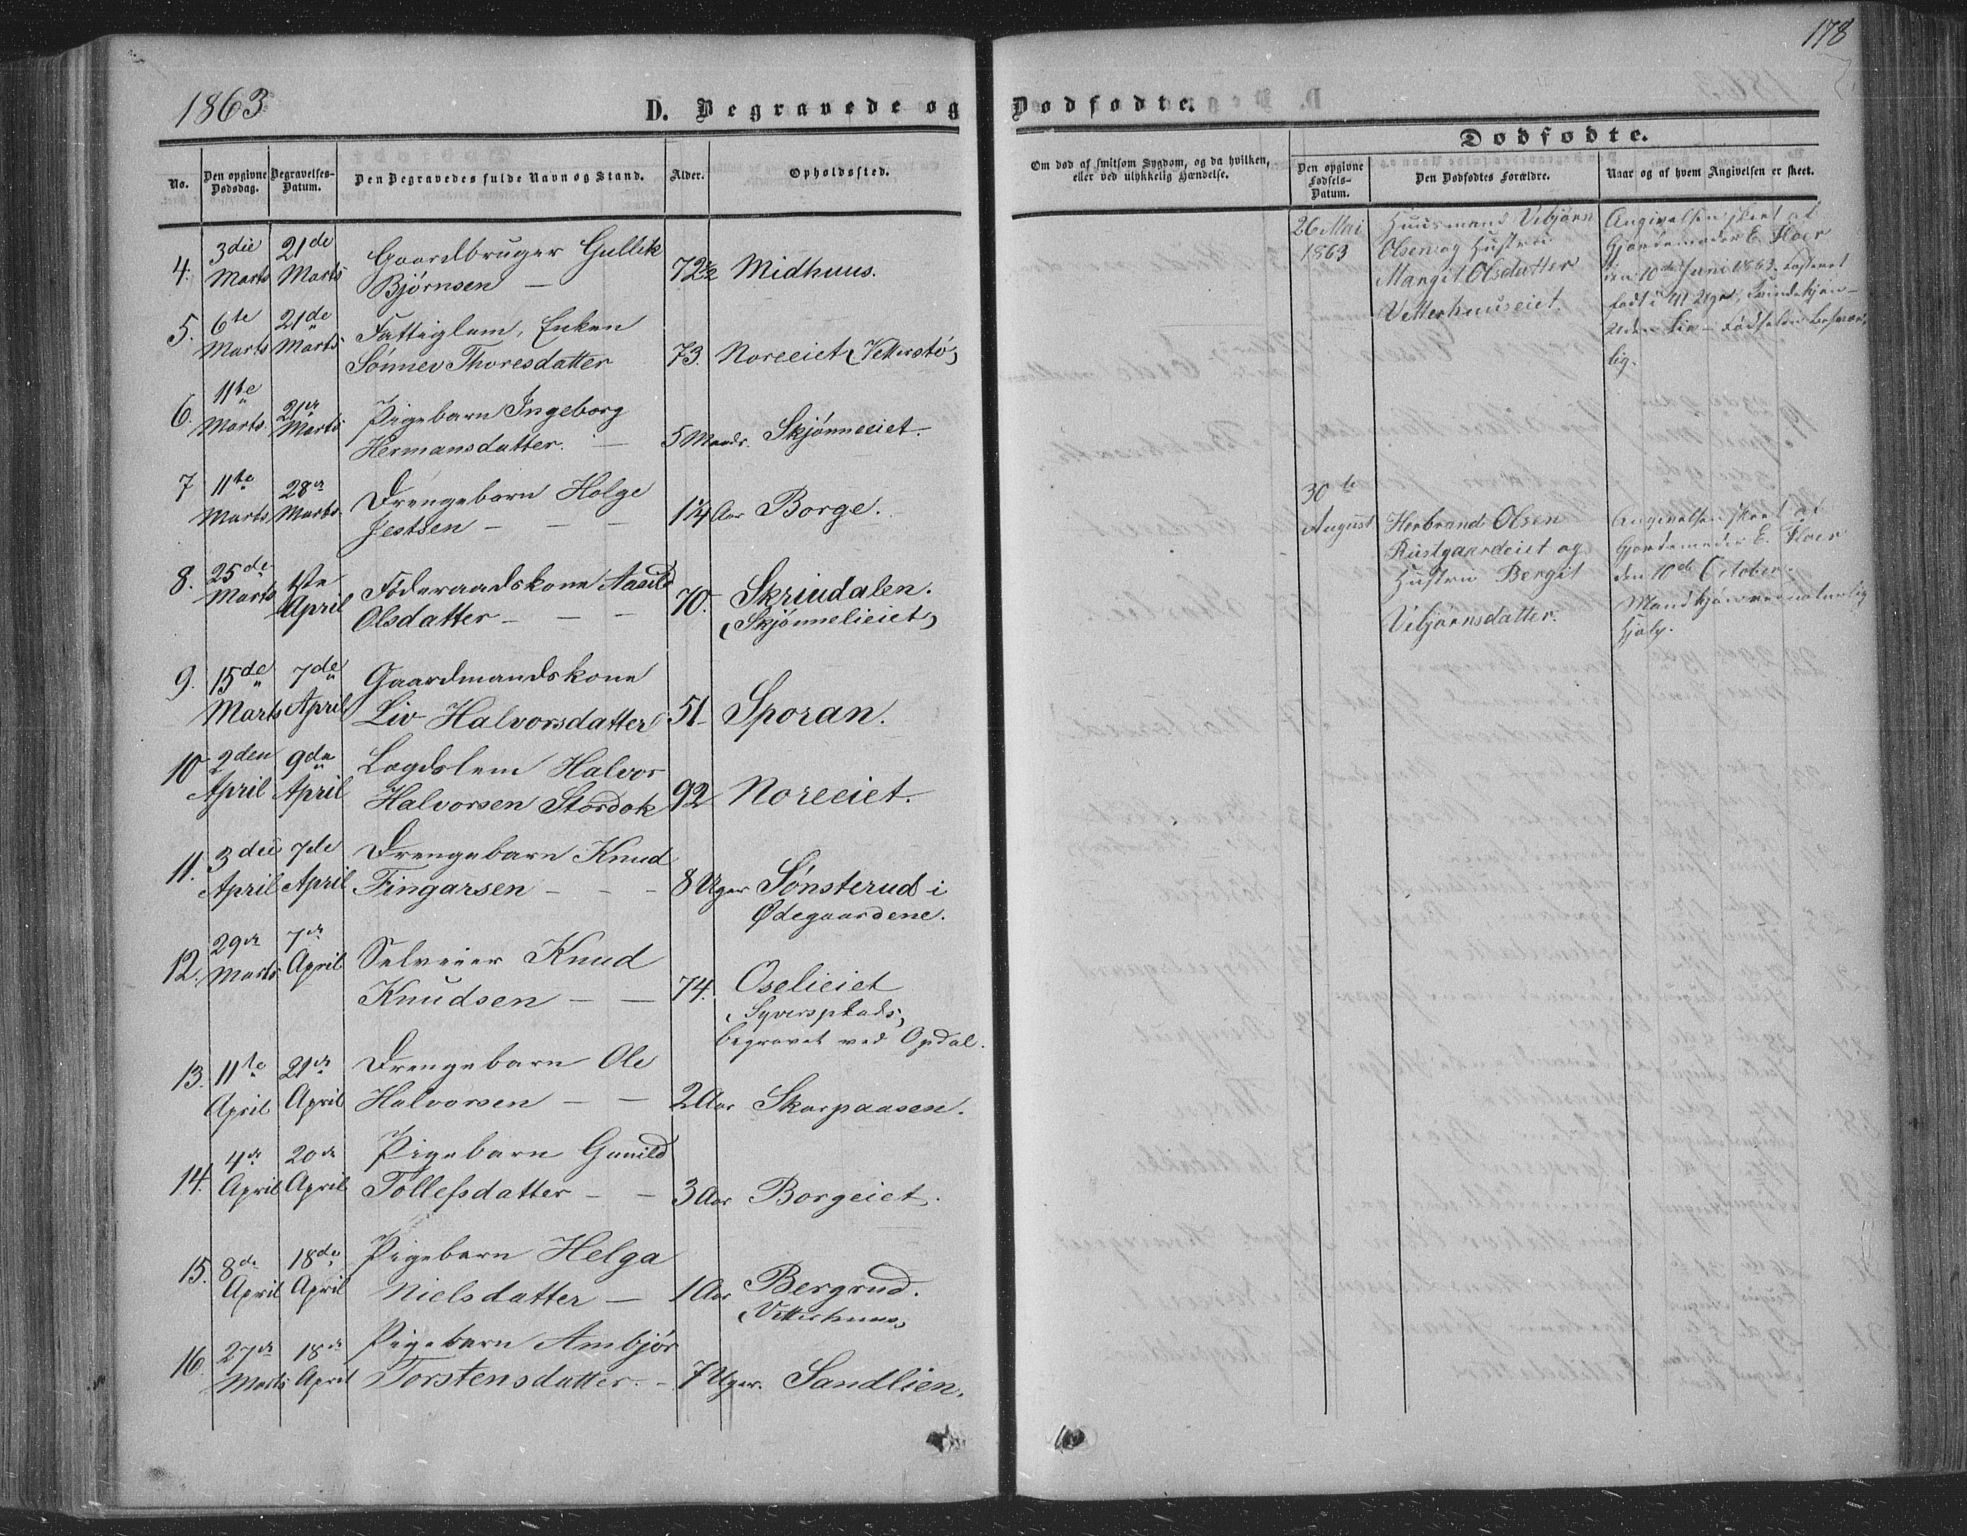 178
1863
D. Begravede og Dødfødte.
Dødfødte.
No.
Den opgivne Dødsdag.
Begravelses-Datum.
Den Begravedes fulde Navn og Stand.
Alder.
Opholdssted.
Om død af smitsom Sygdom, og da hvilken, eller ved ulykkelig Hændelse.
Den opgivne Fødsels-Datum.
Den Dødfødtes Forældre.
Naar og af hvem Angivelsen er skeet.
4. 3die Marts 21de Marts Gaardbruger Gullik
Bjørnsen — 72½ Midhuus.
5. 6te Marts 21de Marts Fattiglem, Enken
Sønnev Thoresdatter 73. Noreeiet (Vetterstø)
6. 11te Marts 21de Marts Pigebarn Ingeborg
Hermansdatter. — 5 Maadr. Skjønneeiet.
7 11te Marts 28de Marts Drengebarn Holge
Jestsen — — — 1¼ Aar Borge.
8. 25de Marts 1ste April Føderaadskone Aasild
Olsdatter — — — 70. Skrindalen.
(Skjønnelieiet)
9. 15de Marts 7de April Gaardmandskone
Liv Halvorsdatter 51 Sporan.
10 2den April 9de April Lægdslem Halvor
Halvorsen Stordok 92 Noreeiet.
11. 3die April 7de April Drengebarn Knud
Fingarsen — — — 8 Uger Sønsterud i
Ødegaardene.
12. 29de Marts 7de April Selveier Knud
Knudsen — — 74. Oselieiet
(Syversplads)
begravet ved Opdal.
13. 11te April 21de April Drengebarn Ole
Halvorsen — — 2 Aar Skarpaasen.
14. 4de April 20de April Pigebarn Gunild
Tollefsdatter — — 3 Aar Borgeiet.
15. 8de April 18de April Pigebarn Helga
Nielsdatter — 1 Aar Bergrud.
(Vetterhuus)
16. 27de Marts 18de April Pigebarn Ambjør
Torstensdatter. — 7 Uger. Sandlien.
26 Mai
1863
Huusmand Vebjørn
Olsen og Hustru
Margit Olsdatter
Vetterhuuseiet.
Angivelsen skeet af
Gjordemoder E. Floer
den 10de Juni 1863. Fosteret
født i 41 Uge, Kvindekjøn —
uden Liv — Fødselen besvær-
lig.
30te
August
Herbrand Olsen
Rustgaardeiet og
Hustru Bergit
Vebjørnsdatter.
Angivelsen skeet af
Gjordemoder E. Floer
den 10de October.
Mandkjøn
Hjelp.